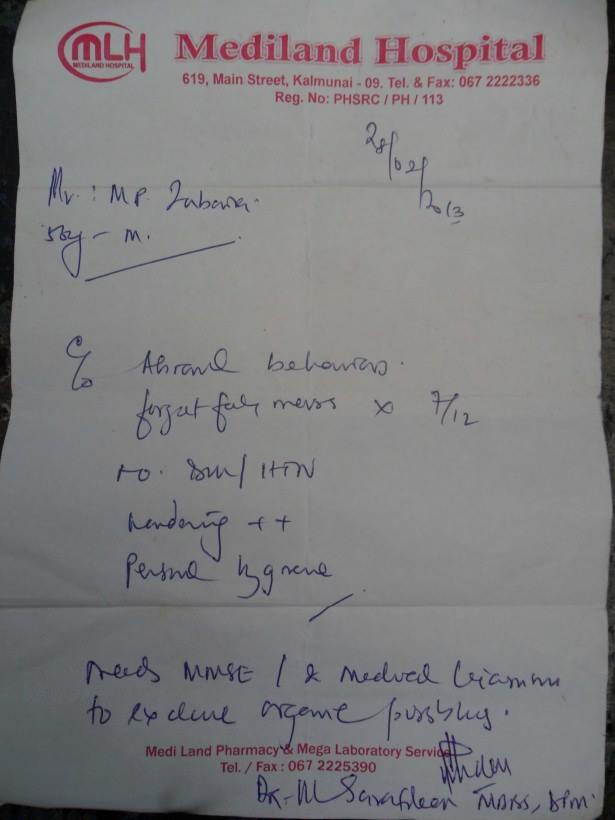 MLH
MEDILAND HOSPITAL
Mediland Hospital
619, Main Street, Kalmunai - 09. Tel. & Fax: 067 2222336
Reg. No: PHSRC / PH / 113
28/02/2013
Mr. : MP.
- M.
C/o behaviours.
x 7/12
DM / HTN
wandering ++
Personal hygiene
needs MMSE / & medical
to exclude organic possibility.
Medi Land Pharmacy & Mega Laboratory Service
Tel. / Fax : 067 2225390
Dr. M MBBS, DPM.